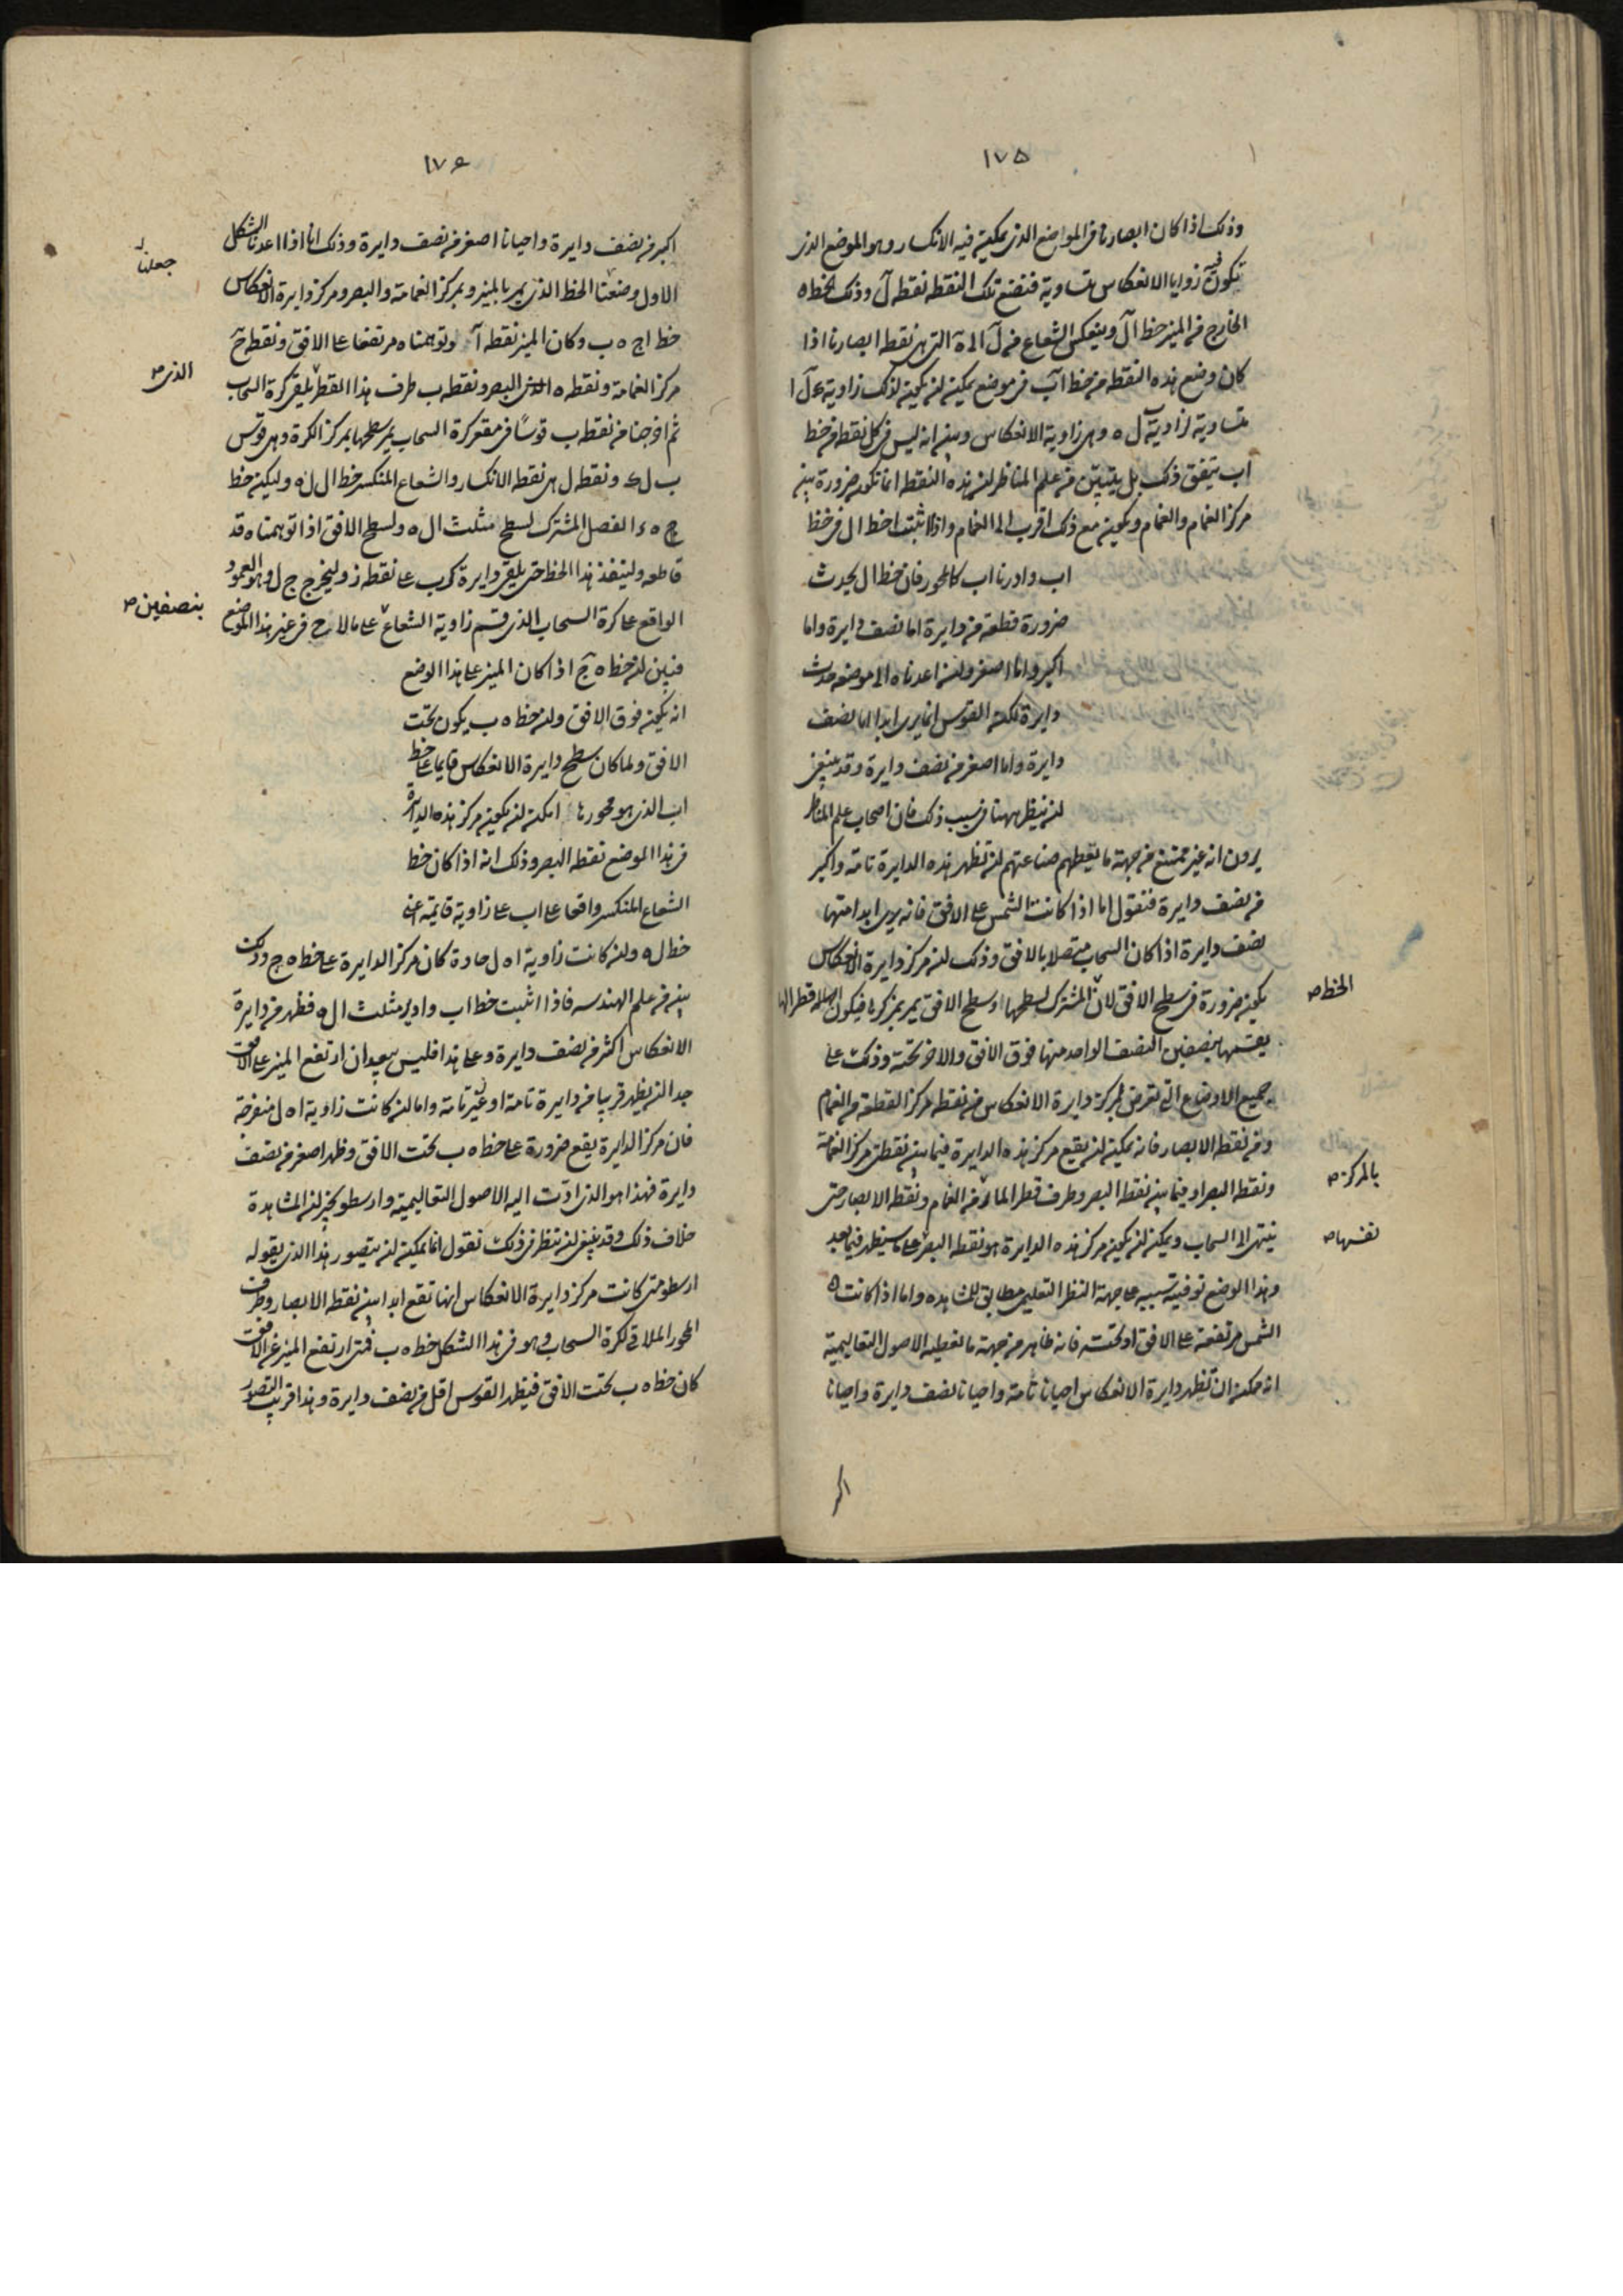 ١٧٥
وذلك اذا كان ابصارنا فى المواضع الذى يمكن فيه الانكسار وهو الموضع الذى
تكون فيه زوايا الانعكاس متساوية فنضع تلك النقطه نقطه ل وذلك لخط ه
الخارج من المنير خط ال وينعكس الشعاع من ل الى ه التى هى نقطه ابصارنا اذا
كان وضع هذه النقطه من خط اب فى موضع يمكن ان يكون لذلك زاوية ل ا
متساوية لزاوية ل ه وهى زاوية الانعكاس وبين انه ليس فى كل نقطه من خط
اب يتفق ذلك بل يتبين من علم المناظر ان هذه النقط انما تكون ضرورة بين
مركز الغمام والغمام ويكون مع ذلك اقرب الى الغمام واذا اثبت خط ال فى خط
اب وادرنا اب كالمحور فان خط ال يحدث
ضرورة قطعه من دايرة اما نصف دايرة واما
اكبر واما اصغر وان اعدناه الى موضعه حدث
دايرة لكن القوس انما يرى ابدا اما نصف
دايرة واما اصغر من نصف دايرة وقد ينبغى
ان ننظر ههنا فى سبب ذلك فان اصحاب علم المناظر
يرون انه غير ممتنع من جهة ما يعطهم صناعتهم ان تظهر هذه الدايرة تامة واكبر
من نصف دايرة فنقول اما اذا كانت الشمس على الافق فانه يرى ابدا منها
نصف دايرة اذا كان السحاب متصلا بالافق وذلك ان مركز دايرة الانعكاس
يكون ضرورة فى سطح الافق لان المشترك لسطحها وسطح الافق يمر بمركزها فيكون قطر الها
الخط ص
يقسمها بنصفين النصف الواحد منها فوق الافق والاخر تحته وذلك على
جميع الاوضاع التى تعرض لمركز دايرة الانعكاس من نقطه مركز القطعة من الغمام
ومن نقطه الابصار فانه يمكن ان يقع مركز هذه الدايرة فيما بين نقطتى مركز الغمامة
ونقطه البصر او فيما بين نقطه البصر وطرف قطر المار من الغمام ونقطه الابصار حتى
بالمركز ص
ينتهى الى السحاب ويمكن ان يكون مركز هذه الدايرة هو نقطه البصر على ما سيظهر فيما بعد
نفسها ص
وهذا الوضع توفية سببه من جهة النظر التعليمى مطابق للمشاهده واما اذا كانت
الشمس مرتفعة على الافق او تحته فانه ظاهر من جهة ما تعطيه الاصول التعاليمية
انه ممكن ان تظهر دايرة الانعكاس احيانا تامة واحيانا نصف دايرة واحيانا
اكبر
١٧٦
اكبر من نصف دايرة واحيانا اصغر من نصف دايرة وذلك انا اذا اعدنا الشكل
الاول وضعنا الخط الذى يمر بالمنير وبمركز الغمامة والبصر ومركز دايرة الانعكاس
جعلنا
خط اج ه ب وكان المنير نقطه ا وتوهمناه مرتفعا على الافق ونقطه ج
مركز الغمامة ونقطه ه البصر ونقطه ب طرف هذا القطر يلقى كرة السحاب
الذى ص
ثم اخرجنا من نقطه ب قوسا فى مقعر كرة السحاب يمر سطحها بمركز الكرة وهى قوس
ب ل ك ونقطه ل هى نقطه الانكسار والشعاع المنكسر خط ال ل ه وليكن خط
ج ه د الفصل المشترك لسطح مثلث ال ه ولسطح الافق اذا توهمناه قد
قاطعه ولينفذ هذا الخط حتى يلقى دايرة ك ب على نقطه ز وليخرج ج ل وهو العمود
الواقع على كرة السحاب الذى قسم زاوية الشعاع على ما لاح فى غير هذا الموضع
بنصفين ص
فبين ان خط ه ج اذا كان المنير على هذا الوضع
انه يكون فوق الافق وان خط ه ب يكون تحت
الافق ولما كان سطح دايرة الانعكاس قايما على خط
اب الذى هو محورها امكن ان يكون مركز هذه الدايرة
فى هذا الموضع نقطه البصر وذلك انه اذا كان خط
الشعاع المنكسر واقعا على اب على زاوية قايمة اعنى
خط ل ه وان كانت زاوية ا ه ل حادة كان مركز الدايرة على خط ه ج وذلك
بين من علم الهندسه فاذا اثبت خط اب وادير مثلث ال ه فظهر من دايرة
الانعكاس اكثر من نصف دايرة وعلى هذا فليس ببعيد ان ارتفع المنير على الافق
جدا ان يظهر قريبا من دايرة تامة او غير تامة واما ان كانت زاوية ا ه ل منفرجة
فان مركز الدايرة يقع ضرورة على خط ه ب تحت الافق وظهر اصغر من نصف
دايرة فهذا هو الذى ادت اليه الاصول التعاليمية وارسطو يخبر ان المشاهدة
خلاف ذلك وقد ينبغى ان ننظر فى ذلك نقول انما يمكن ان يتصور هذا الذى يقوله
ارسطو متى كانت مركز دايرة الانعكاس انها تقع ابدا بين نقطه الابصار وطرف
المحور الملاقى لكرة السحاب وهو فى هذا الشكل خط ه ب فمتى ارتفع المنير عن الافق
كان خط ه ب تحت الافق فيظهر القوس اقل من نصف دايرة وهذا قريب التصور